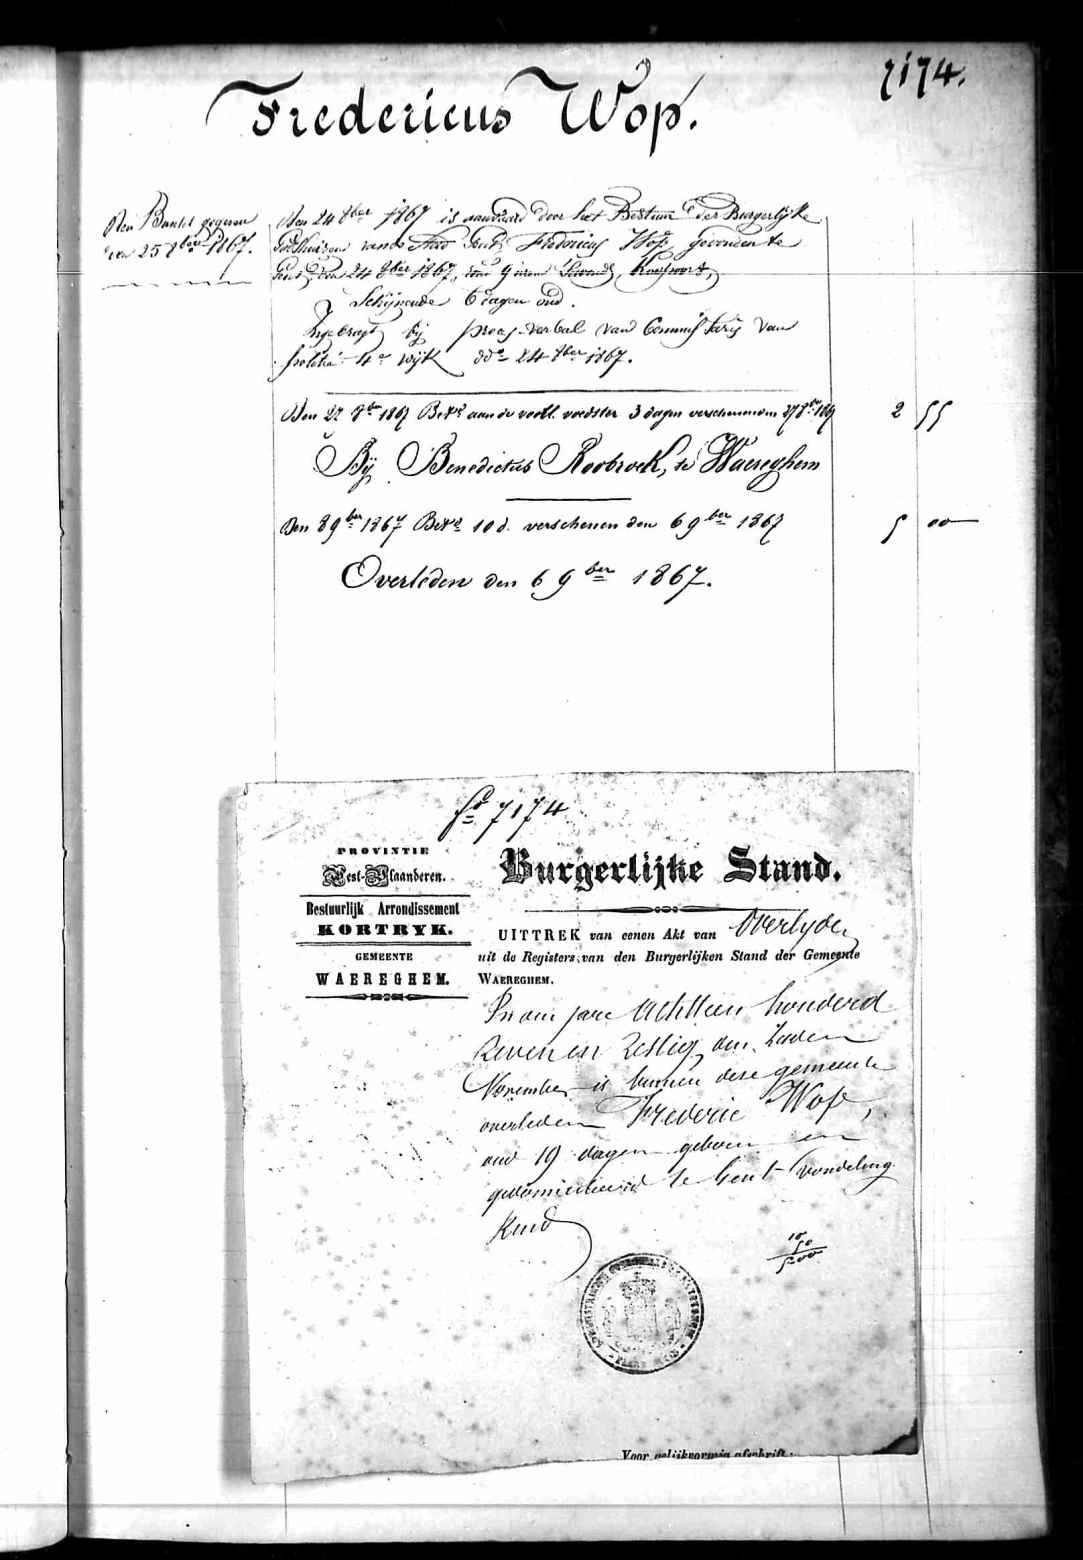 7174.
Fredericus Wop.
Den Bundel gegeven
den 25 8ber 1867.
Den 24 8ber 1867 is aanvaard door het Bestuur der Burgerlijke
Godshuizen van Stad Gent, Fredericus Wop gevonden te
Gent, den 24 8ber 1867, ten 9 uren
Schijnende 6 dagen oud.
Ingebragt bij proces-verbal van Commissaris van
politie 4e wijk ddo 24 8ber 1867.
Den 27 8ber 1867 Beta aan de voorl. voedster 3 dagen verschenen den 27 8ber 1867 2 55
Bij Benedictus Roobroek, te Waereghem
Den 8 9ber 1867 Beta 10 d. verschenen den 6 9ber 1867 5 00
Overleden den 6 9ber 1867.
fo 7174
PROVINTIE
West-Vlaanderen.
Bestuurlijk Arrondissement
KORTRYK.
GEMEENTE
WAEREGHEM.
Burgerlijke Stand.
UITTREK van eenen Akt van Overlyden
uit de Registers van den Burgerlijken Stand der Gemeente
WAEREGHEM.
In den jare Achttien honderd
zeven en zestig, den zesden
November is binnen deze gemeente
overleden Frederic Wop,
oud 19 dagen geboren en
gedomicilieerd te Gent vondeling
kind
10
50
500
Voor gelijkvormig afschrift: